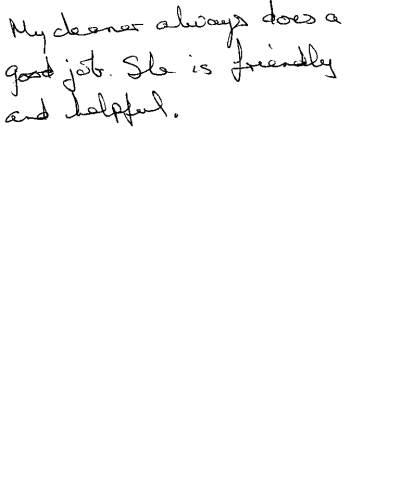 My cleaner always does a
good job. She is friendly
and helpful.